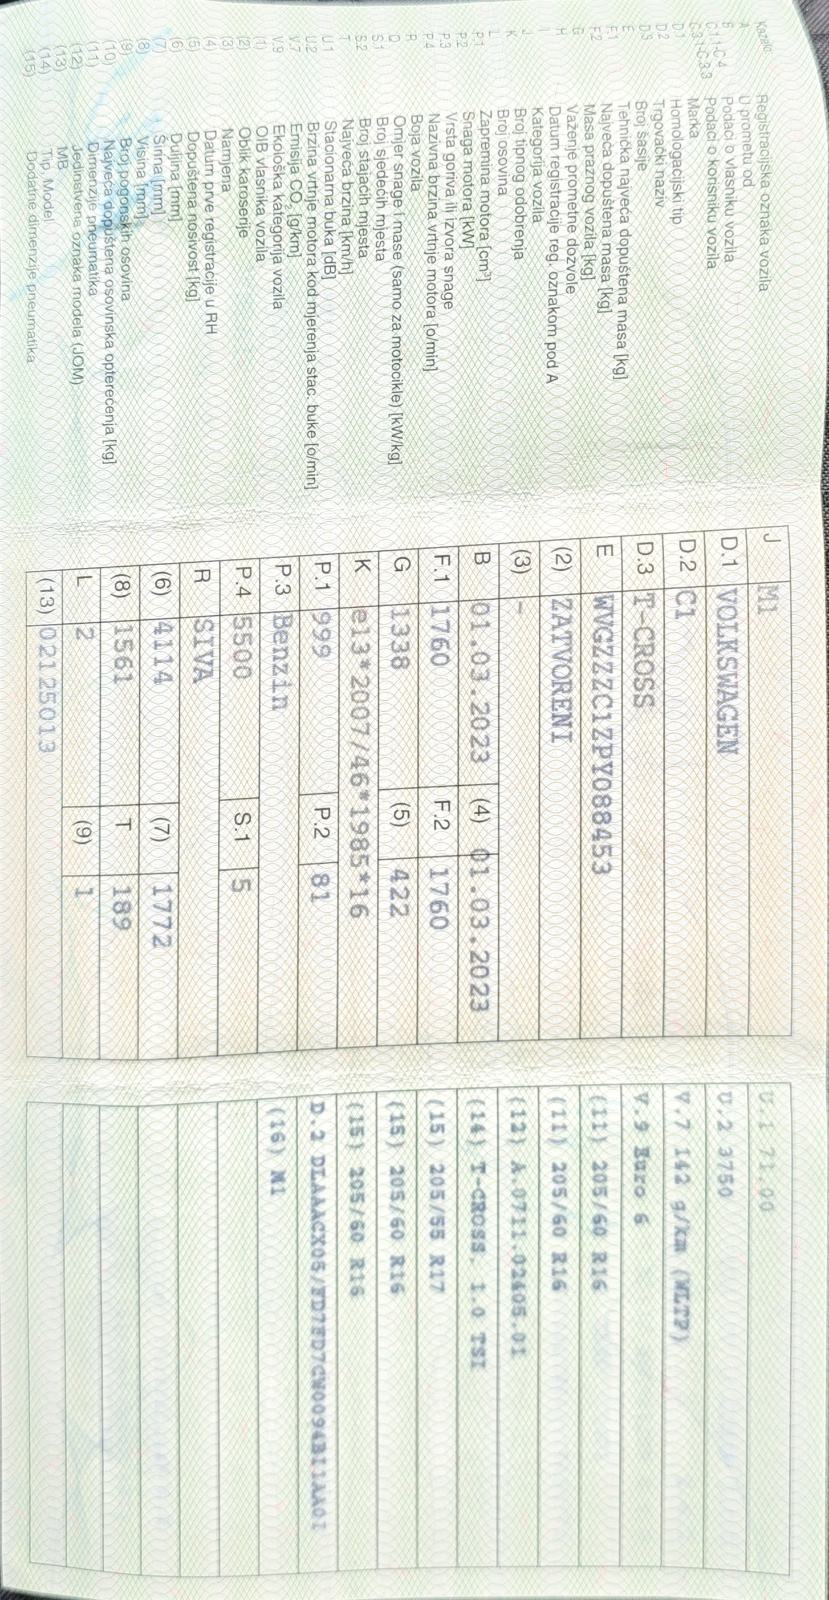 Kazalo:
Registracijska oznaka vozila
A U prometu od
B Podaci o vlasniku vozila
C.1.1-C.4 Podaci o korisniku vozila
C.3.1-C.3.3 Marka
D.1 Homologacijski tip
D.2 Trgovački naziv
D.3 Broj šasije
E Tehnička najveća dopuštena masa [kg]
F.1 Najveća dopuštena masa [kg]
F.2 Masa praznog vozila [kg]
G Važenje prometne dozvole
H Datum registracije reg. oznakom pod A
I Kategorija vozila
J Broj tipnog odobrenja
K Broj osovina
L Zapremina motora [cm³]
P.1 Snaga motora [kW]
P.2 Vrsta goriva ili izvora snage
P.3 Nazivna brzina vrtnje motora [o/min]
P.4 Boja vozila
R Omjer snage i mase (samo za motocikle) [kW/kg]
Q Broj sjedećih mjesta
S.1 Broj stajaćih mjesta
S.2 Najveća brzina [km/h]
T Stacionarna buka [dB]
U.1 Brzina vrtnje motora kod mjerenja stac. buke [o/min]
U.2 Emisija CO₂ [g/km]
V.7 Ekološka kategorija vozila
V.9 OIB vlasnika vozila
(1) Oblik karoserije
(2) Namjena
(3) Datum prve registracije u RH
(4) Dopuštena nosivost [kg]
(5) Duljina [mm]
(6) Širina [mm]
(7) Visina [mm]
(8) Broj pogonskih osovina
(9) Najveća dopuštena osovinska opterećenja [kg]
(10) Dimenzije pneumatika
(11) Jedinstvena oznaka modela (JOM)
(12) MB
(13) Tip, Model
(14) Dodatne dimenzije pneumatika
(15)
J M1
D.1 VOLKSWAGEN
D.2 C1
D.3 T-CROSS
E WVGZZZC1ZPY088453
(2) ZATVORENI
(3) -
B 01.03.2023 (4) 01.03.2023
F.1 1760 F.2 1760
G 1338 (5) 422
K e13*2007/46*1985*16
P.1 999 P.2 81
P.3 Benzin
P.4 5500 S.1 5
R SIVA
(6) 4114 (7) 1772
(8) 1561 T 189
L 2 (9) 1
(13) 02125013
U.1 71.00
U.2 3750
V.7 142 g/km (WLTP)
V.9 Euro 6
(11) 205/60 R16
(11) 205/60 R16
(12) A.0711.02405.01
(14) T-CROSS, 1.0 TSI
(15) 205/55 R17
(15) 205/60 R16
(15) 205/60 R16
D.2 DLAAACX05/FD7FD7CW0094B11AA01
(16) N1